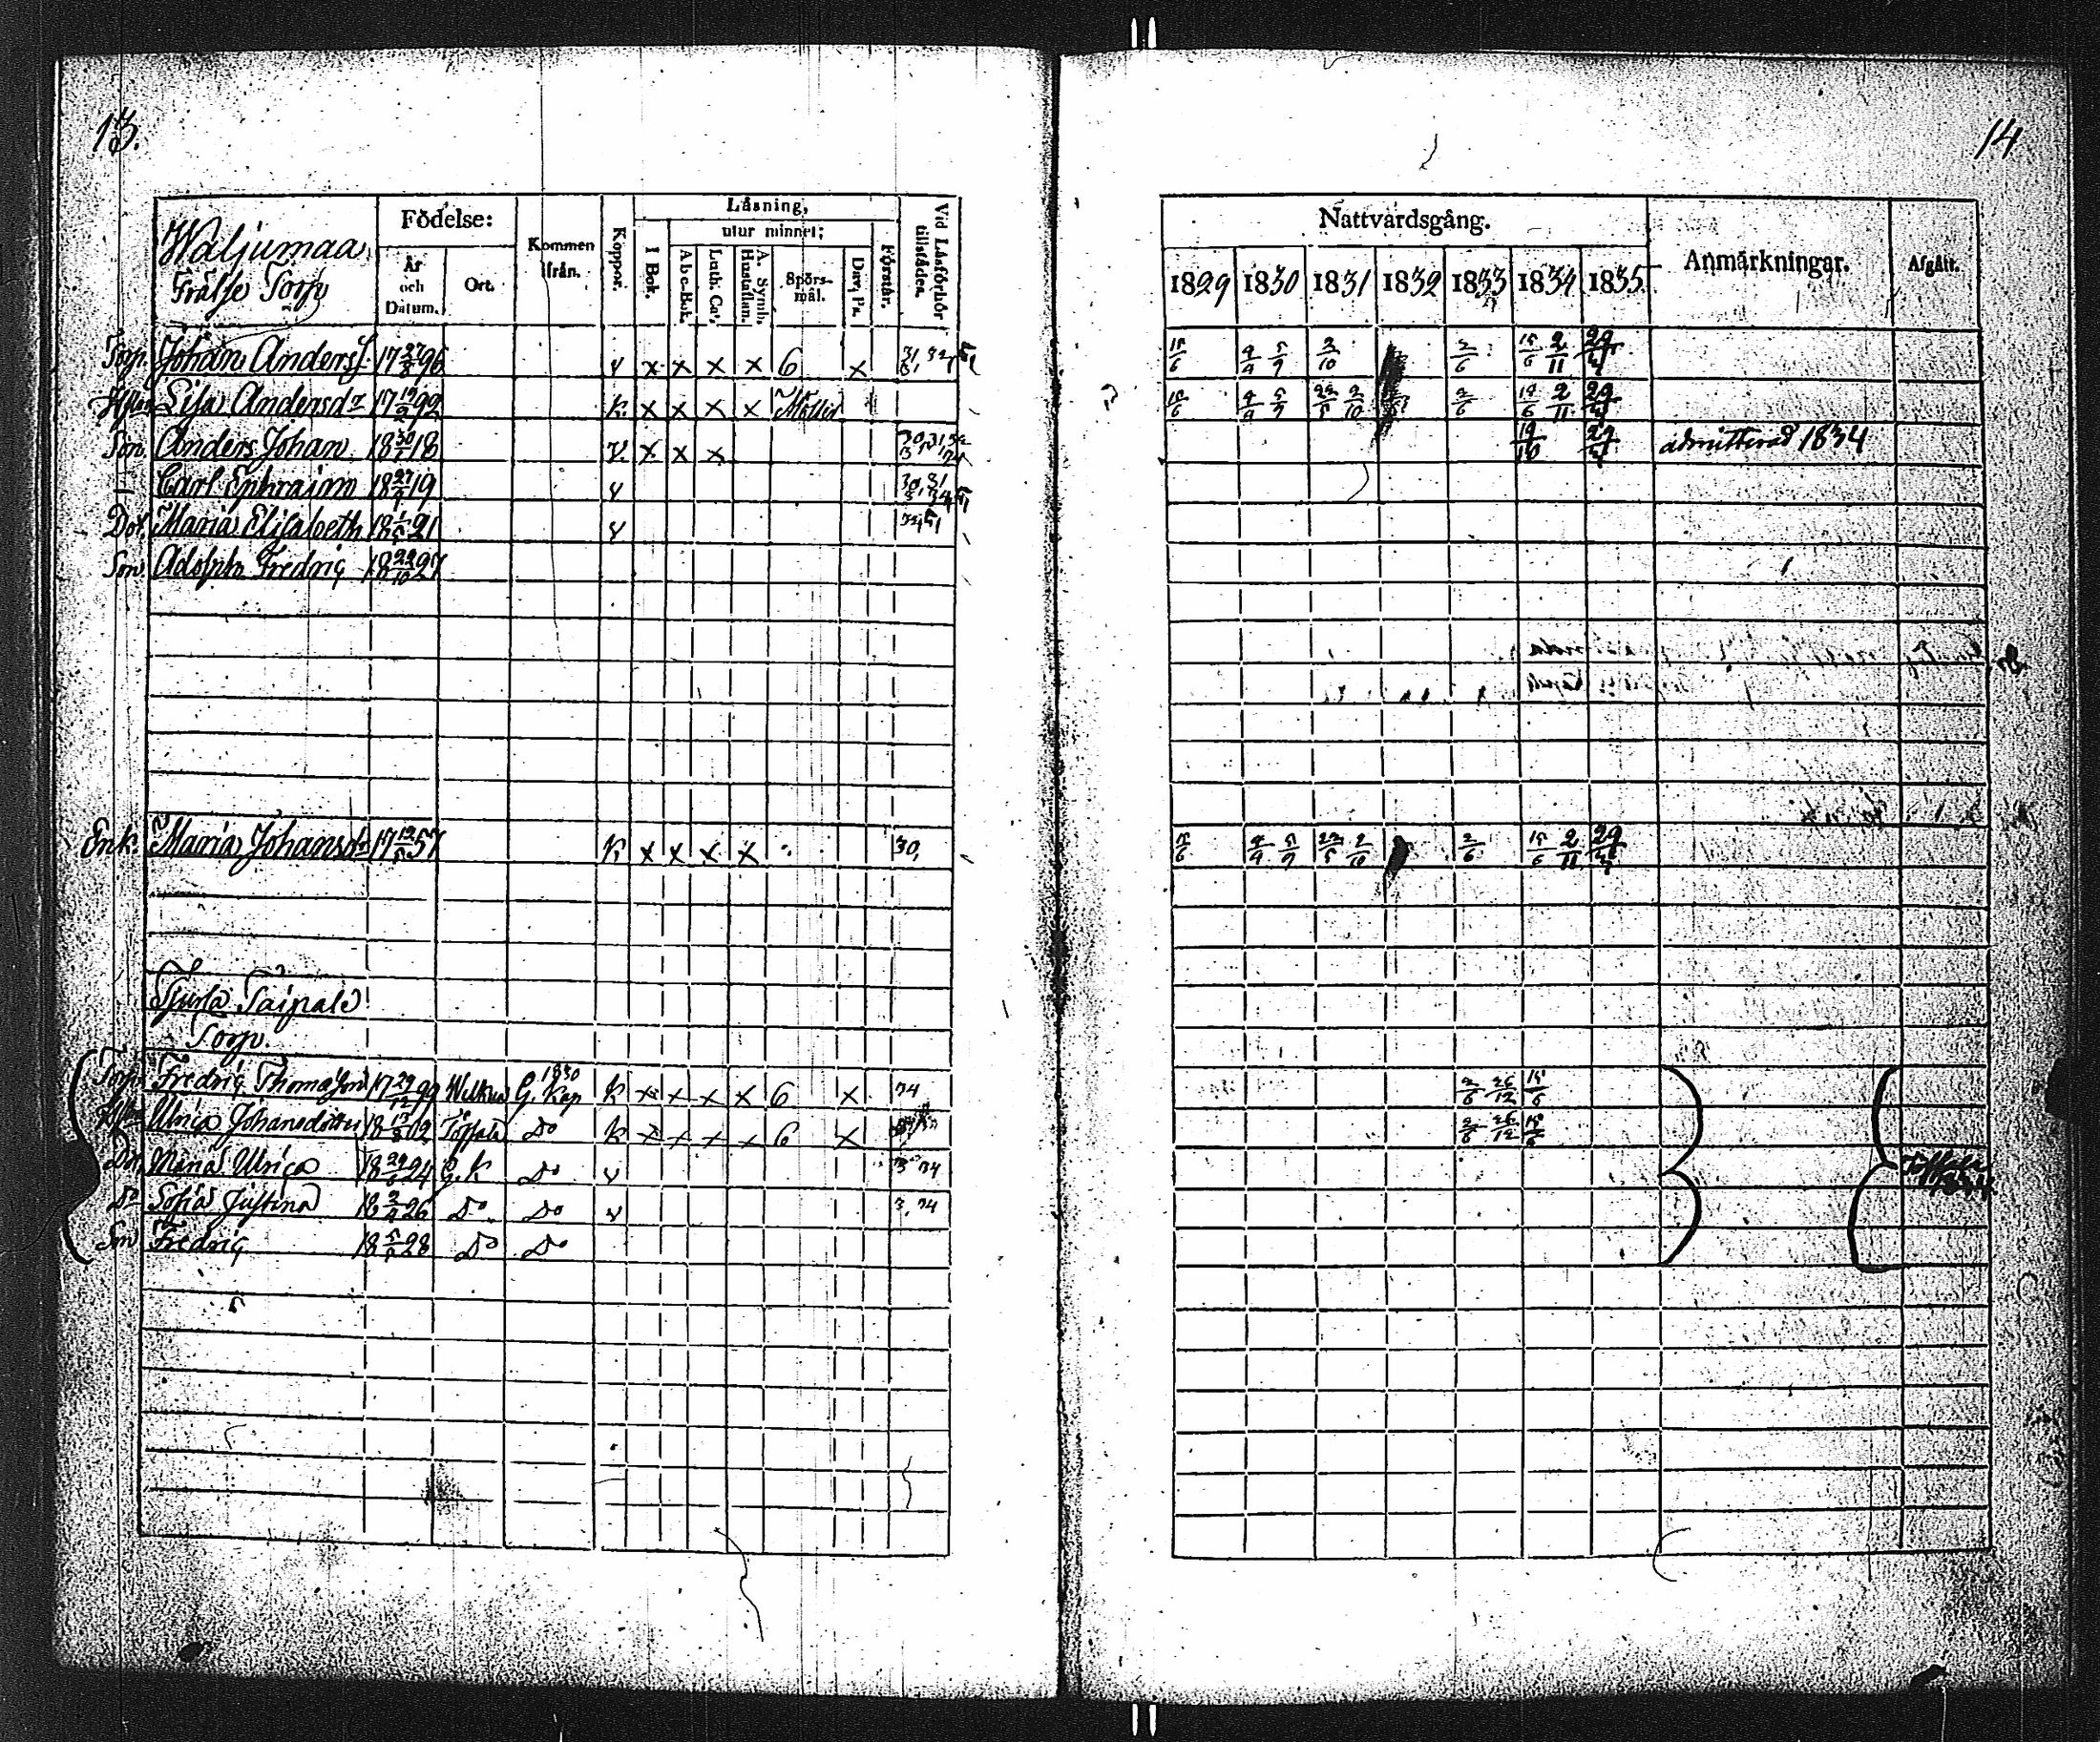 13.
Waljumaa
Frälse Torp
Födelse:
År och Datum.
Ort.
Kommen ifrån.
Koppor.
Läsning,
I Bok.
utur minnet;
A b c-Bok.
Luth. Cat.
A. Symb. Hustaflan.
Spörsmål.
Dav. Ps.
Förstår.
Vid Läsförhör tillstädes.
Torp. Johan Anders S. 17 27/8 96 v x x x x 6 x
Lisa Andersdr 17 92 k. x x x x
Son. Anders Johan 18 30/1 18 v. x x x
– Carl Ephraim 18 27 19 v
Dot. Maria Elisabeth 18 21 v
Son. Adolph Fredrig 18 22/10 27
Enk. Maria Johansdr 17 57 k x x x x 30,
Taipale
Torp.
Torp. Fredrig Thomasson 17 99 1830 G. Kap k x x x x 6 x 34
Ulrica Johansdotter 18 02 Do k x x x x 6 x
Dot. Maria Ulrica 18 24 G. k Do v 34
Do Sofia Justina 18 26 Do Do v 3, 34
Son Fredrig 18 28 Do Do
14
Nattvardsgång.
1829 1830 1831 1832 1833 1834 1835
Anmärkningar.
Afgått.
15/6 4/4 5/9 2/10 2/6 15/6 2/11 29/4
15/6 4/4 5/9 22/5 2/10 2/6 15/6 2/11 29/4
19/10 29/4 admitterad 1834
15/6 4/4 5/9 22/5 2/10 2/6 15/6 2/11 29/4
2/6 26/12 15/6
2/6 26/12 15/6